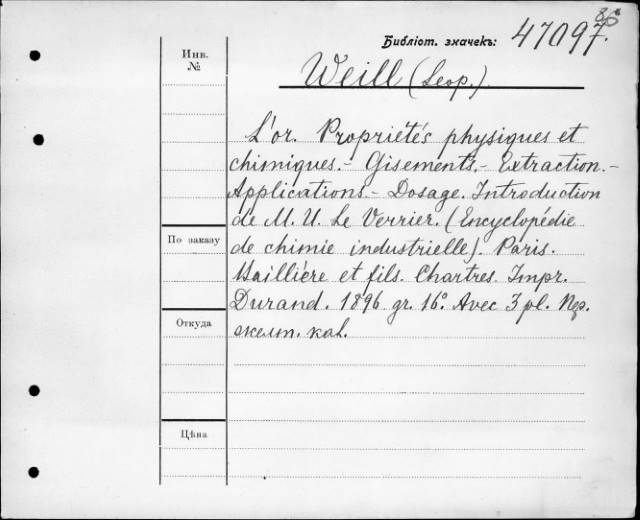 86
Библіот. значекъ: 47097.
Инв.
№
Weill (Leop.)
L'or. Propriétés physiques et
chimiques.- Gisements.- Extraction.-
Applications.- Dosage. Introduction
de M. U. Le Verrier. (Encyclopédie
de chimie industrielle). Paris.
Baillière et fils. Chartres. Impr.
Durand. 1896. gr. 16°. Avec 3 pl. Пер.
желт. кол.
По заказу
Откуда
Цѣна